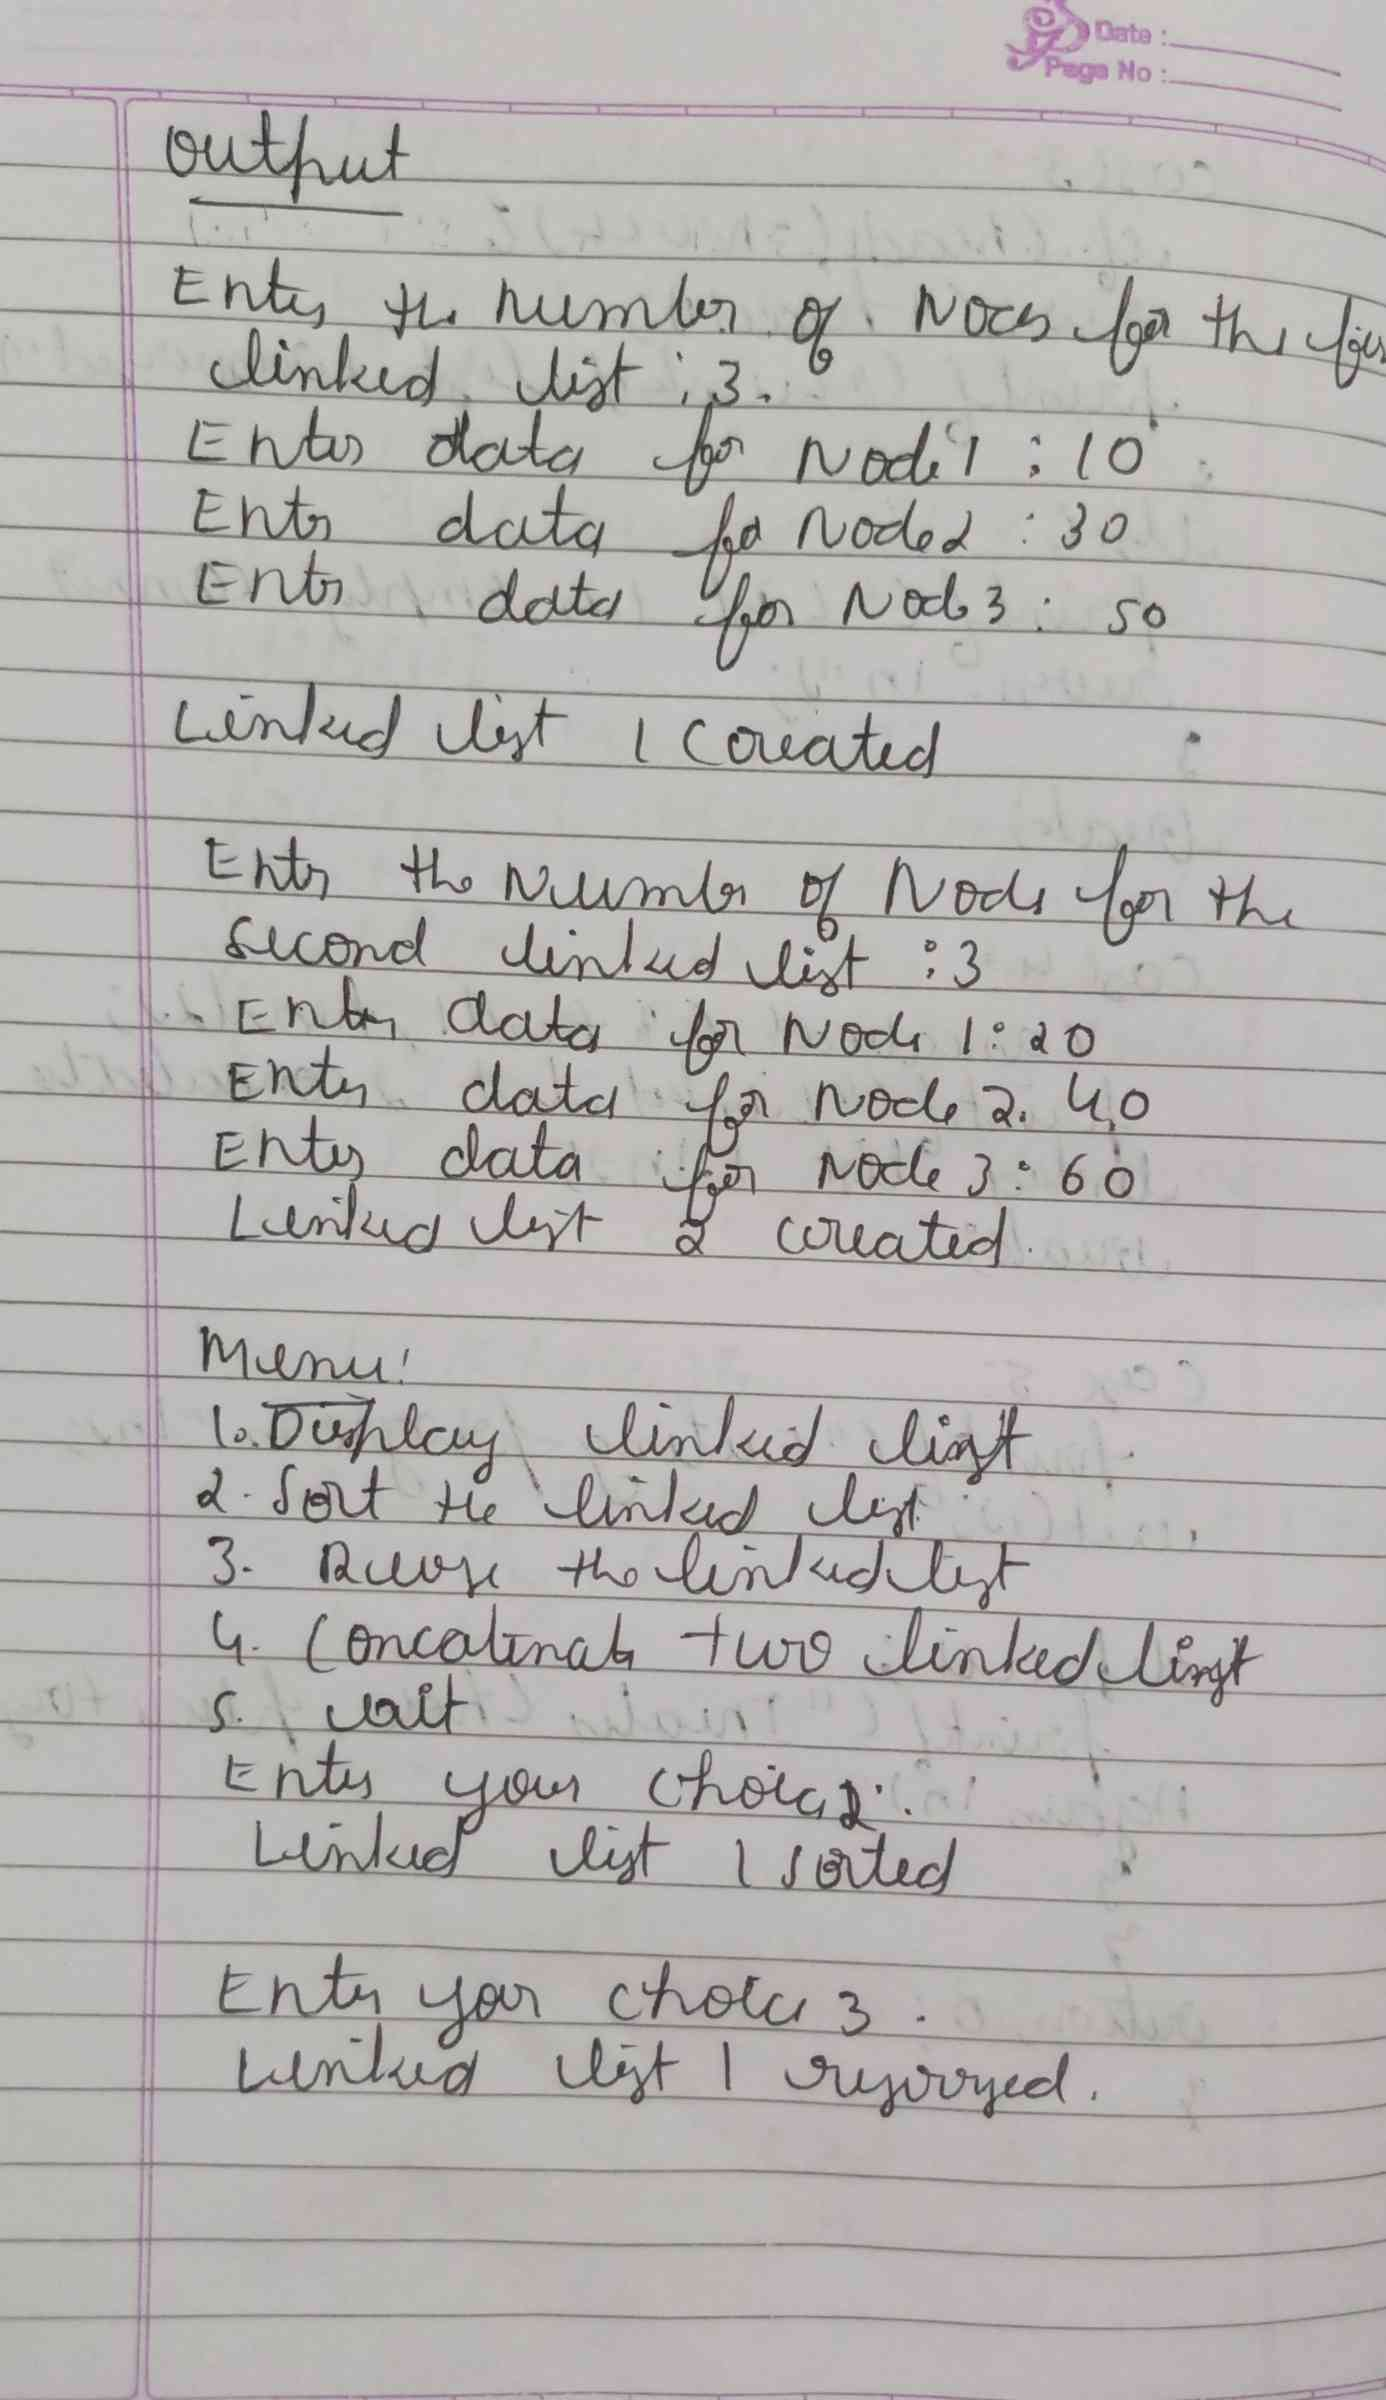 Date :
Page No :
output
Enter the number of Nodes for the
linked list : 3.
Enter data for Node 1 : 10
Enter data for Node 2 : 30
Enter data for Node 3 : 50
Linked list 1 created
Enter the Number of Nodes for the
second linked list : 3
Enter data for Node 1 : 20
Enter data for Node 2. 40
Enter data for Node 3 : 60
Linked list 2 created.
Menu:
1. Display linked list
2. Sort the linked list
3. Reverse the linked list
4. Concatenate two linked list
5.
Enter your choice 2.
Linked list 1 sorted
Enter your choice 3.
Linked list 1